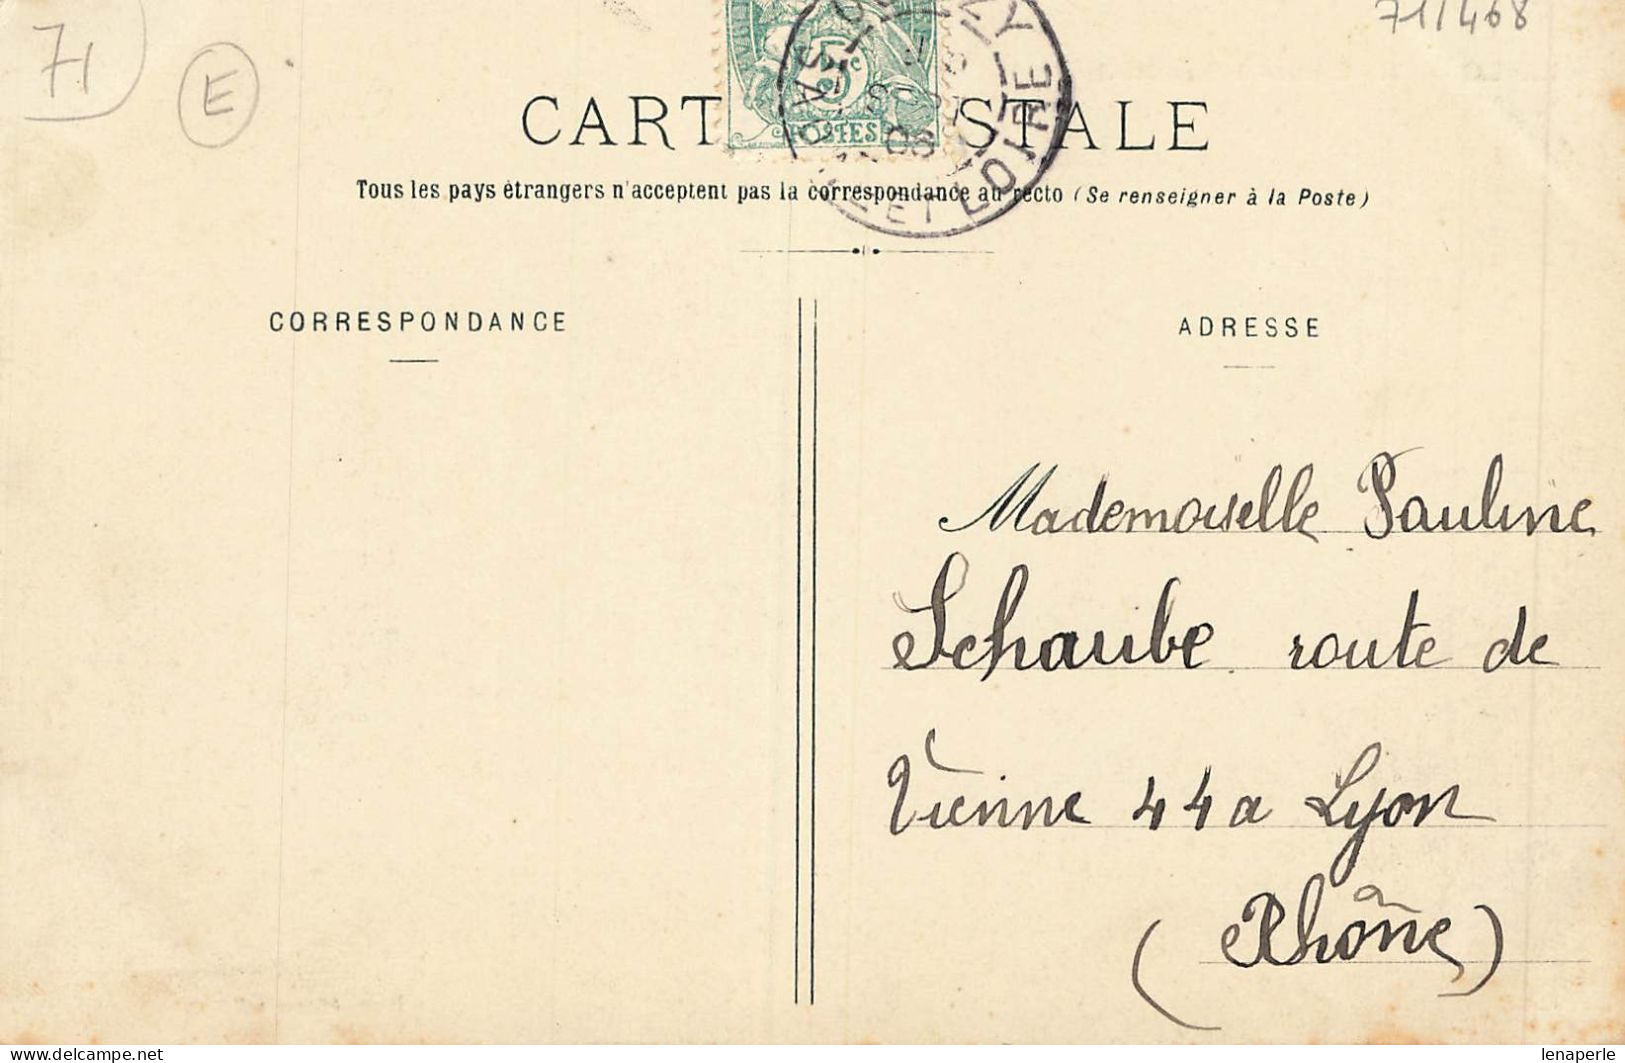 71
E
71/468
5c
POSTES
SAONE ET LOIRE
CART STALE
Tous les pays étrangers n'acceptent pas la correspondance au recto (Se renseigner à la Poste)
CORRESPONDANCE
ADRESSE
Mademoiselle Pauline
Schaube route de
Vienne 44 a Lyon
(Rhône)
lenaperle